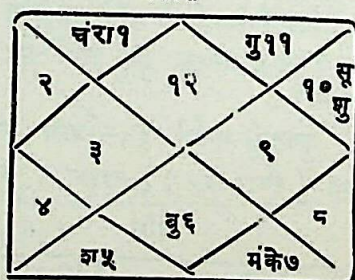 चंरा१ गु११
२ १२ सू
१० शु
३ ९
४ बु६ ८
श५ मंके७